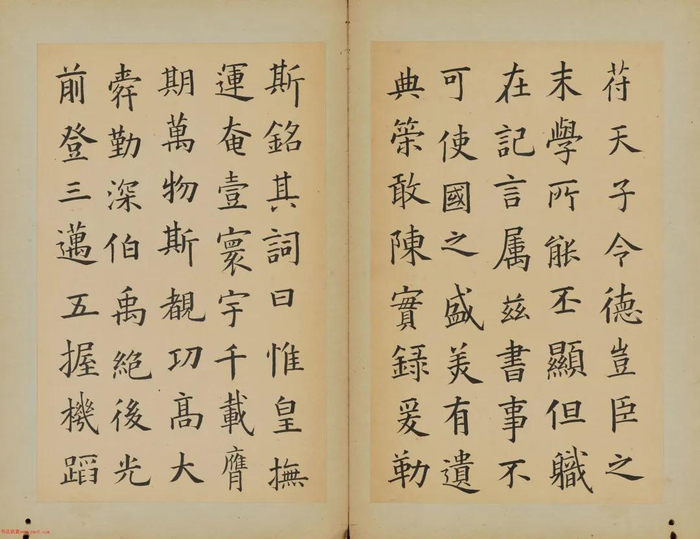 苻天子令德豈臣之
末學所能丕顯但職
在記言属兹書事不
可使國之盛美有遺
典策敢陳實録爰勒
斯銘其詞曰惟皇撫
運奄壹寰宇千載膺
期萬物斯覩功髙大
舜勤深伯禹絶後光
前登三邁五握機蹈